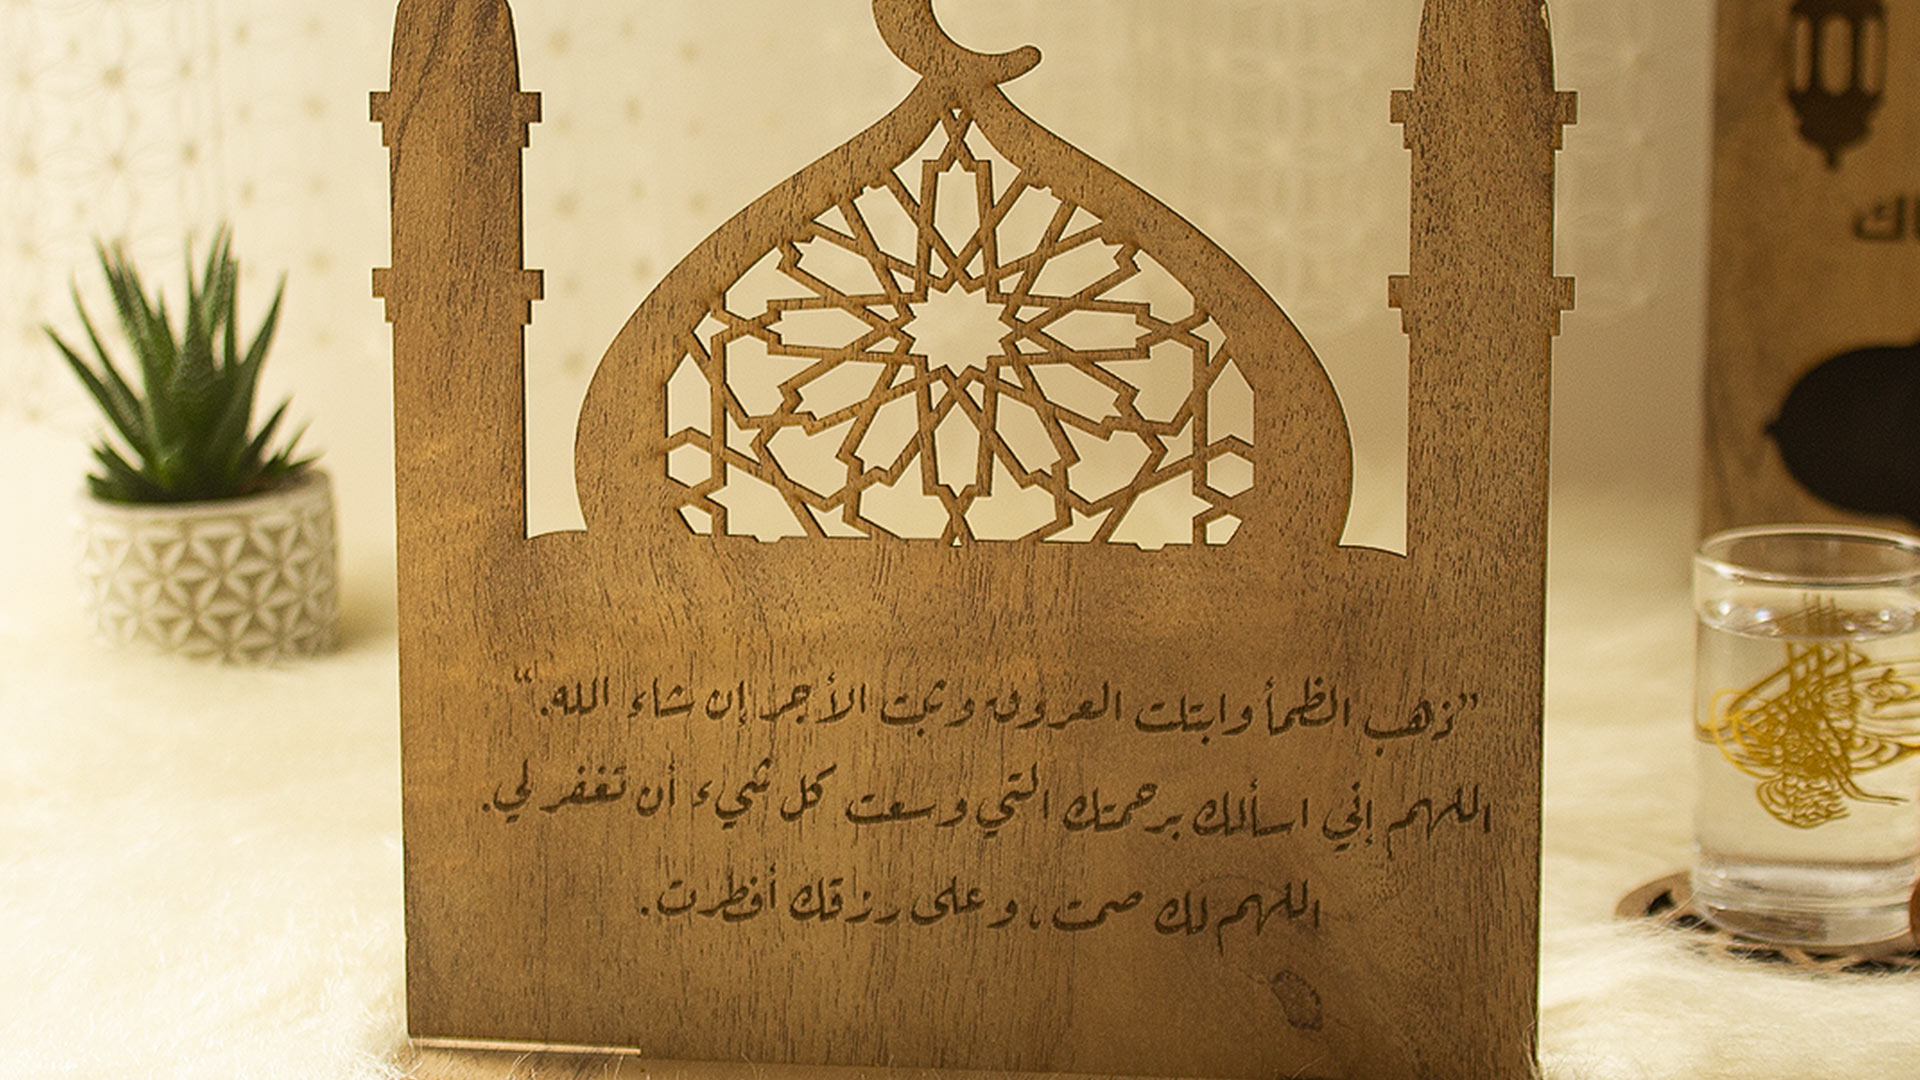 ”ذهب الظمأ وابتلت العروق وثبت الأجر إن شاء الله.“
اللهم إني اسألك برحمتك التي وسعت كل شيء أن تغفر لي.
اللهم لك صمت، وعلى رزقك أفطرت.